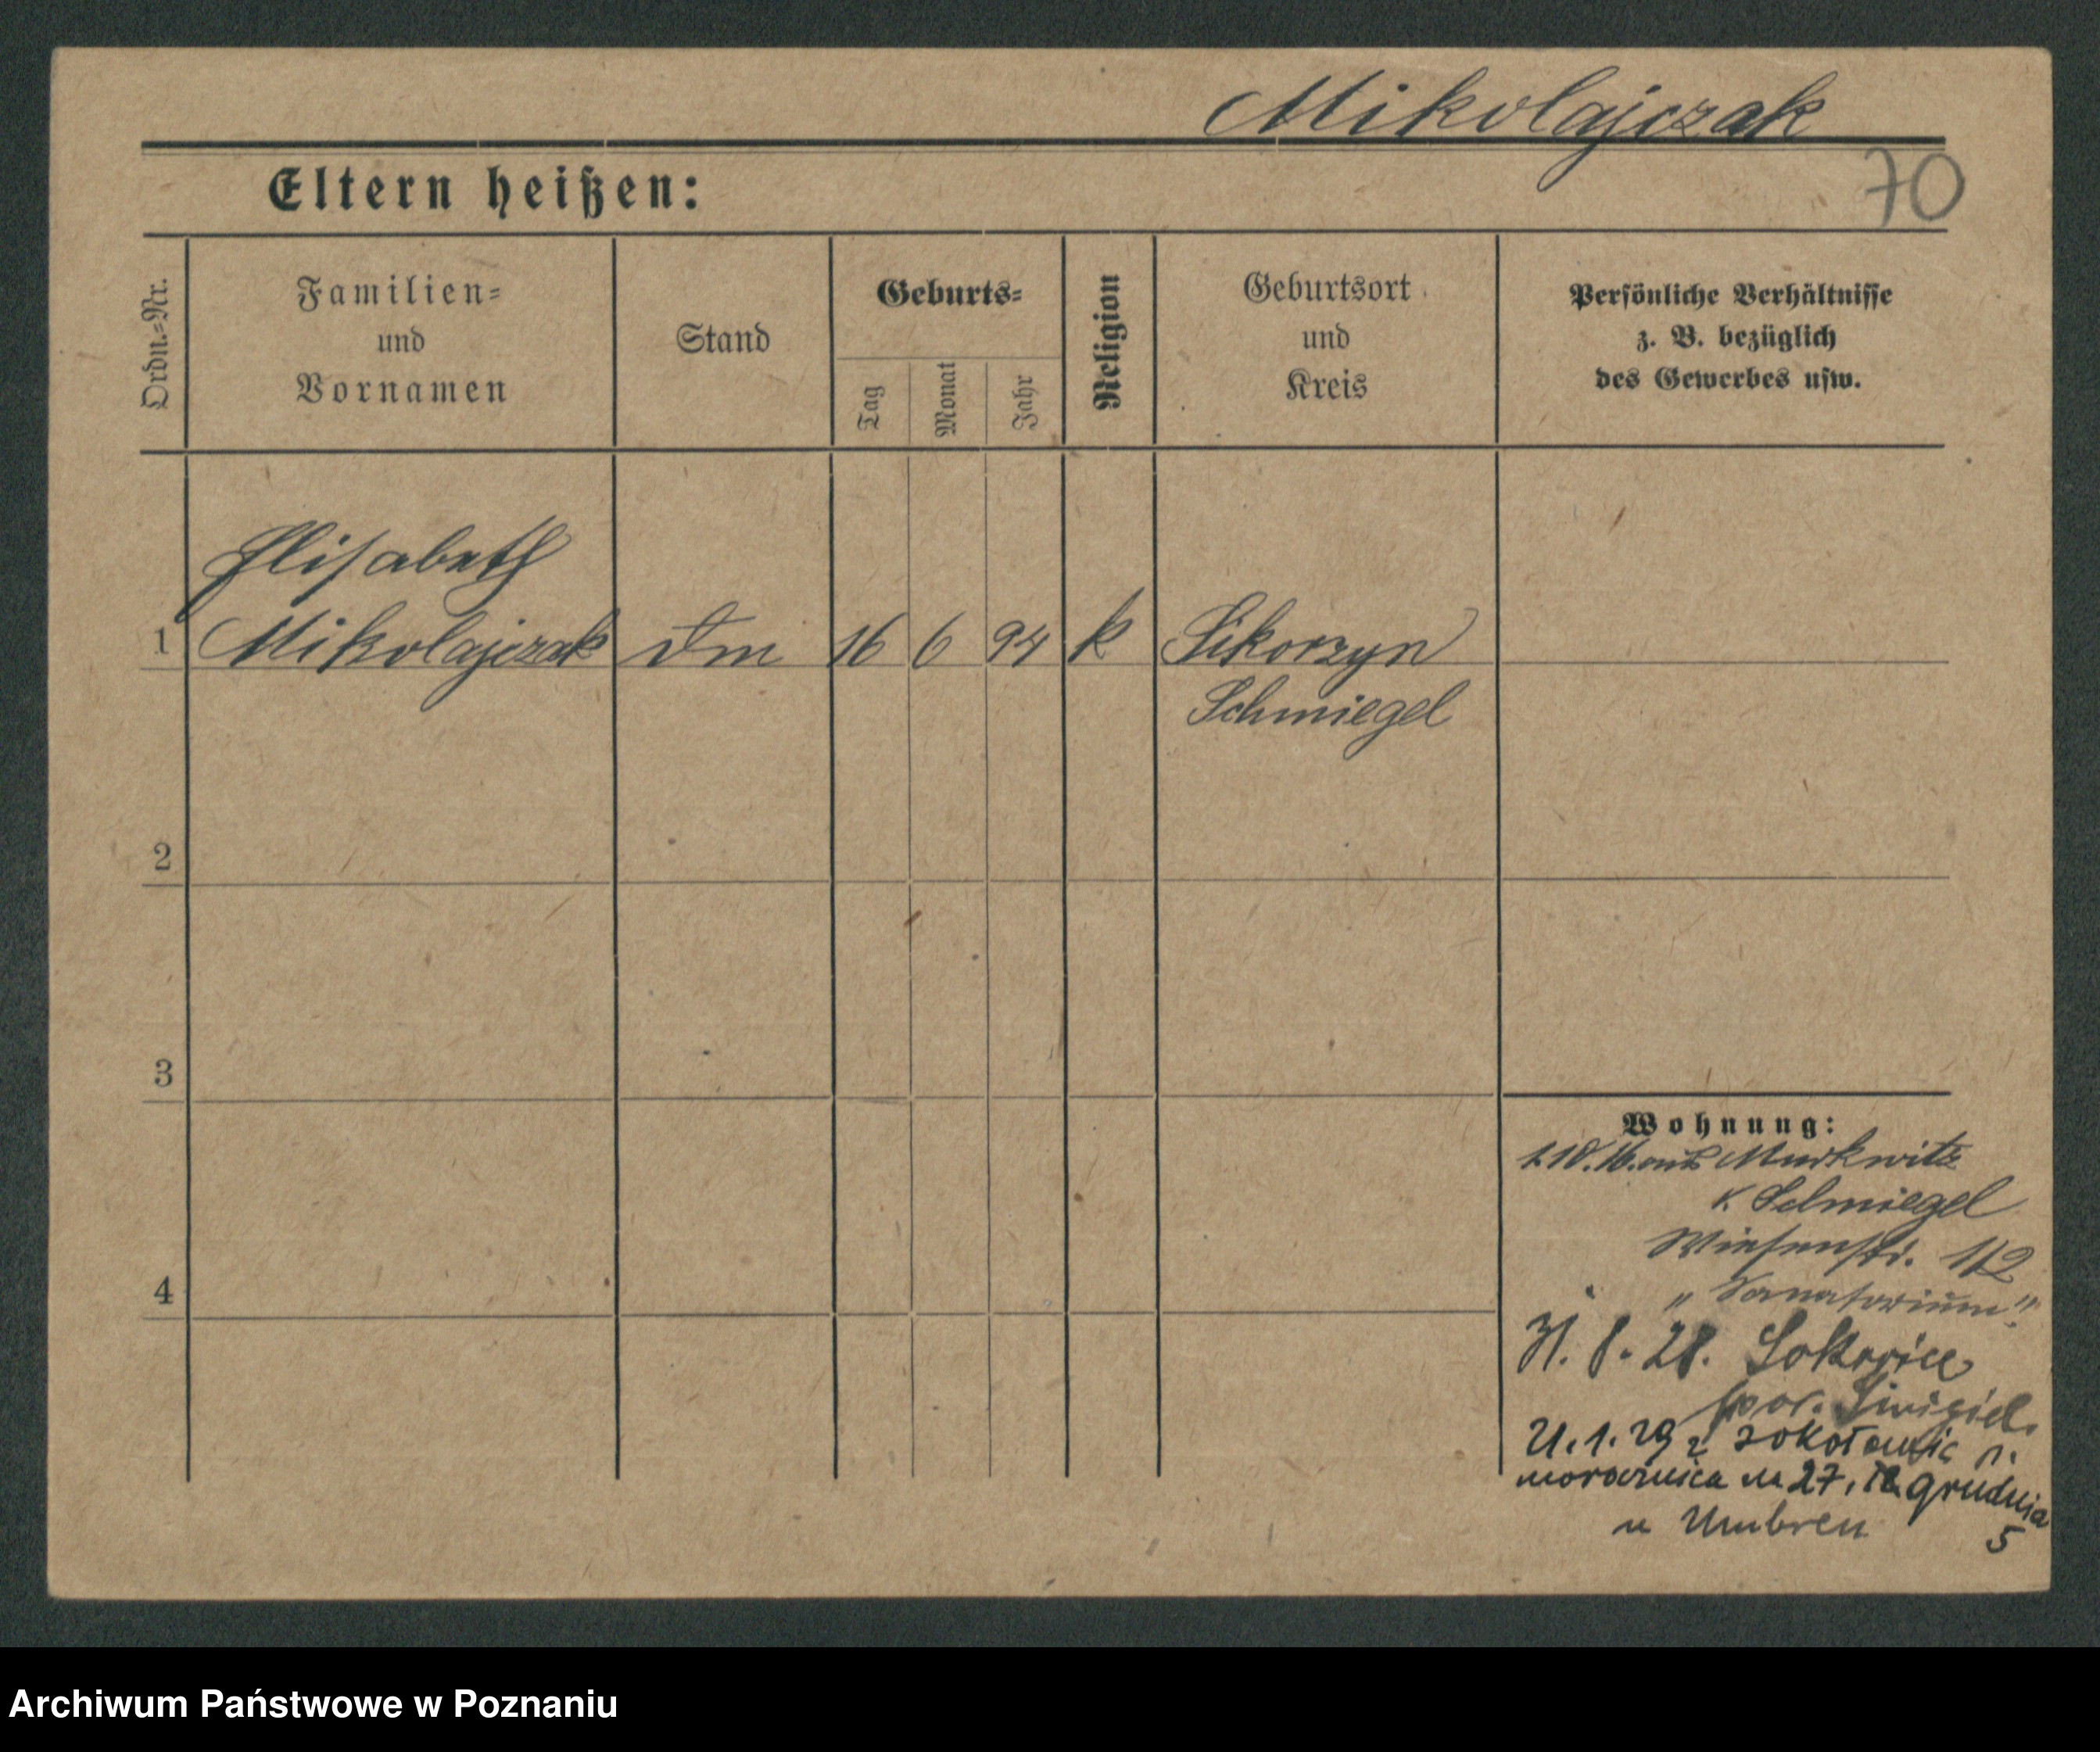 Mikolajczak
70
Eltern heißen:
Ordn.=Nr.
Familien=
und
Vornamen
Stand
Geburts=
Tag
Monat
Jahr
Religion
Geburtsort
und
Kreis
Persönliche Verhältnisse
z. B. bezüglich
des Gewerbes usw.
Elisabeth
1 Mikolajczak 16 6 94 k Sikorzyn
Schmiegel
2
3
4
Wohnung:
1.10.16. aus Murkwitz
K Schmiegel
Wiesenstr. 1/2
„Sanatorium"
31. 8. 28.
pow. Śmigiel.
21. 1. 29 z
27. grudnia
u Umbreu
5
Archiwum Państwowe w Poznaniu